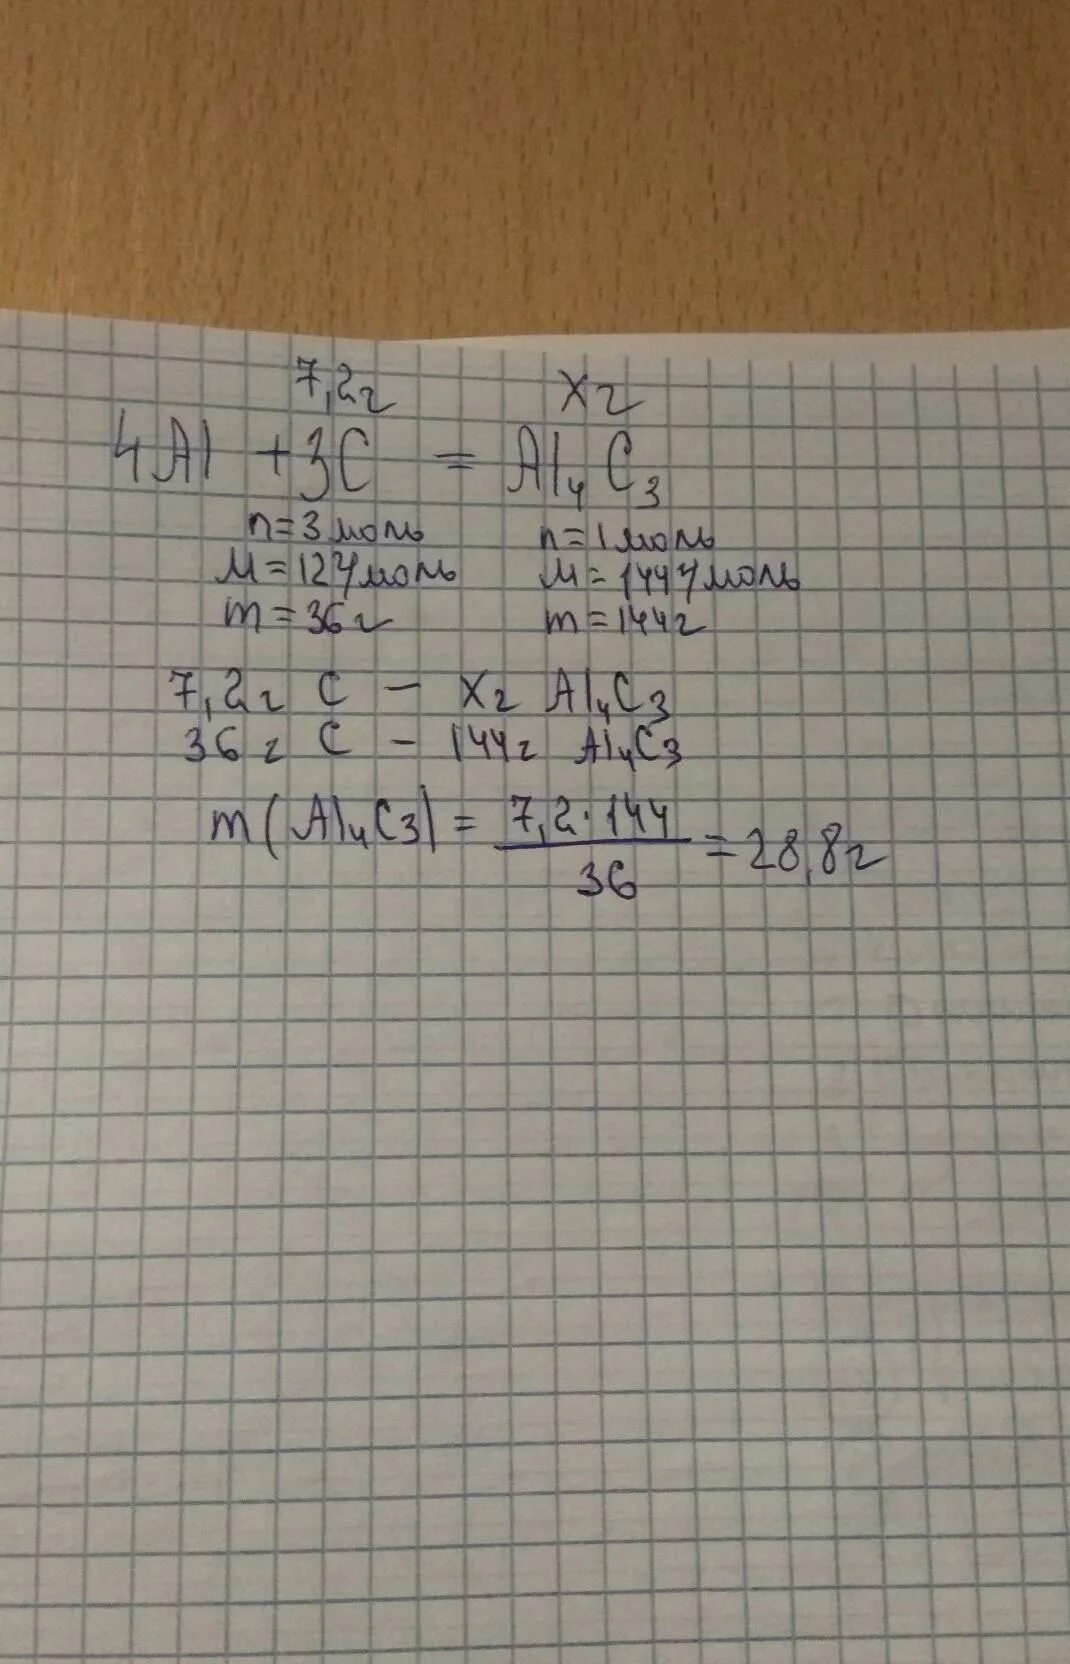 7,2г xг
4Al + 3C = Al₄C₃
n=3моль n=1моль
M=12г/моль M=144г/моль
m=36г m=144г
7,2г C – xг Al₄C₃
36г C – 144г Al₄C₃
m(Al₄C₃) = 7,2·144 / 36 = 28,8г